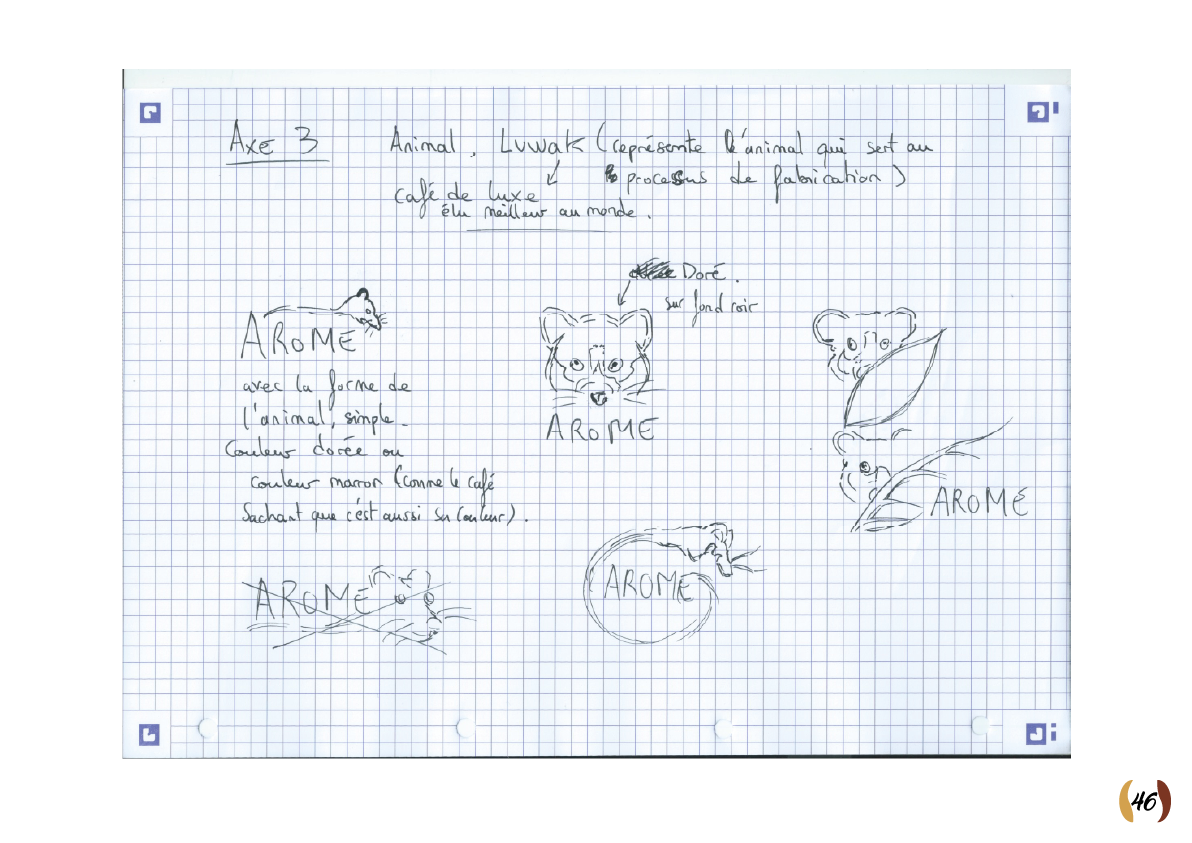 Axe 3
Animal. Luwak (représente l'animal qui sert au
processus de fabrication)
café de luxe
élu meilleur au monde.
Doré.
sur fond noir
AROME
avec la forme de
l'animal, simple.
Couleur dorée ou
couleur marron (comme le café
Sachant que c'est aussi sa couleur).
AROME
AROME
AROME
AROME
46